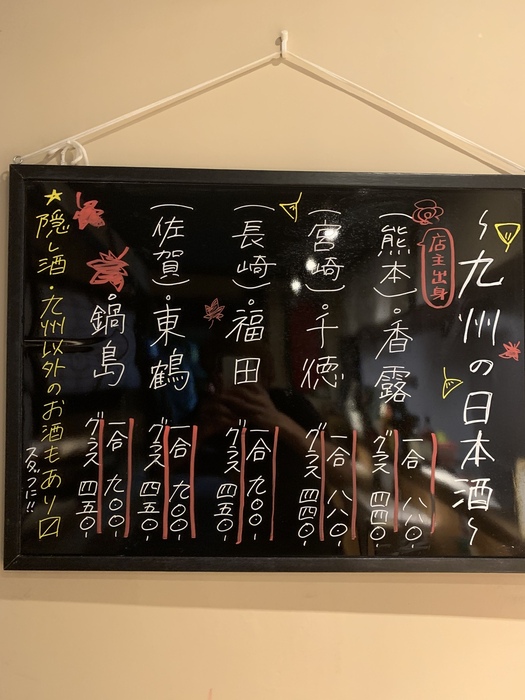 〜九州の日本酒〜
店主出身
(熊本)・香露
一合 八八〇-
グラス 四四〇-
(宮崎)・千徳
一合 八八〇-
グラス 四四〇-
(長崎)・福田
一合 九〇〇-
グラス 四五〇-
(佐賀)・東鶴
一合 九〇〇-
グラス 四五〇-
・鍋島
一合 九〇〇-
グラス 四五〇-
★隠し酒・九州以外のお酒もあり〼
スタッフに!!